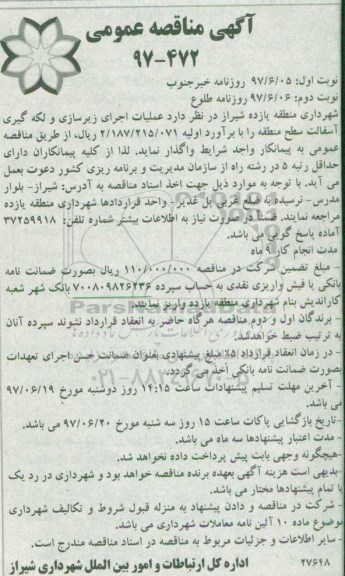 آگهی مناقصه عمومی
۹۷-۴۷۲
نوبت اول: ۹۷/۶/۰۵ روزنامه خبرجنوب
نوبت دوم: ۹۷/۶/۰۶ روزنامه طلوع
شهرداری منطقه یازده شیراز در نظر دارد عملیات اجرای زیرسازی و لکه گیری
آسفالت سطح منطقه را با برآورد اولیه ۲/۱۸۷/۲۱۵/۰۷۱ ریال، از طریق مناقصه
عمومی به پیمانکار واجد شرایط واگذار نماید. لذا از کلیه پیمانکاران دارای
حداقل رتبه ۵ در رشته راه از سازمان مدیریت و برنامه ریزی کشور دعوت بعمل
می آید. با توجه به موارد ذیل جهت اخذ اسناد مناقصه به آدرس: شیراز- بلوار
مدرس- نرسیده به ضلع غربی پل غدیر- واحد قراردادها شهرداری منطقه یازده
مراجعه نمایند. ضمنا در صورت نیاز به اطلاعات بیشتر شماره تلفن: ۳۷۲۵۹۹۱۸
آماده پاسخ گویی می باشد.
مدت انجام کار ۹ ماه
- مبلغ تضمین شرکت در مناقصه ۱۱۰/۰۰۰/۰۰۰ ریال بصورت ضمانت نامه
بانکی یا فیش واریزی نقدی به حساب سپرده ۷۰۰۸۰۹۸۲۶۲۳۶ بانک شهر شعبه
کاراندیش بنام شهرداری منطقه یازده واریز نمایند.
- برندگان اول و دوم مناقصه هرگاه حاضر به انعقاد قرارداد نشوند سپرده آنان
به ترتیب ضبط خواهدشد.
- در زمان انعقاد قرارداد ۵٪ مبلغ پیشنهادی بعنوان ضمانت حسن اجرای تعهدات
بصورت ضمانت نامه بانکی أخذ می گردد.
- آخرین مهلت تسلیم پیشنهادات ساعت ۱۴:۱۵ روز دوشنبه مورخ ۹۷/۰۶/۱۹
می باشد.
-تاریخ بازگشایی پاکات ساعت ۱۵ روز سه شنبه مورخ ۹۷/۰۶/۲۰ می باشد.
- مدت اعتبار پیشنهادها سه ماه می باشد.
-هیچگونه وجهی بابت پیش پرداخت داده نخواهد شد.
-بدیهی است هزینه آگهی بعهده برنده مناقصه خواهد بود و شهرداری در رد یک
یا تمام پیشنهادها مختار می باشد.
- شرکت در مناقصه و دادن پیشنهاد به منزله قبول شروط و تکالیف شهرداری
موضوع ماده ۱۰ آئین نامه معاملات شهرداری می باشد.
- سایر اطلاعات و جزئیات مربوط به مناقصه در اسناد مناقصه مندرج است.
۲۷۶۴۸ اداره کل ارتباطات و امور بین الملل شهرداری شیراز